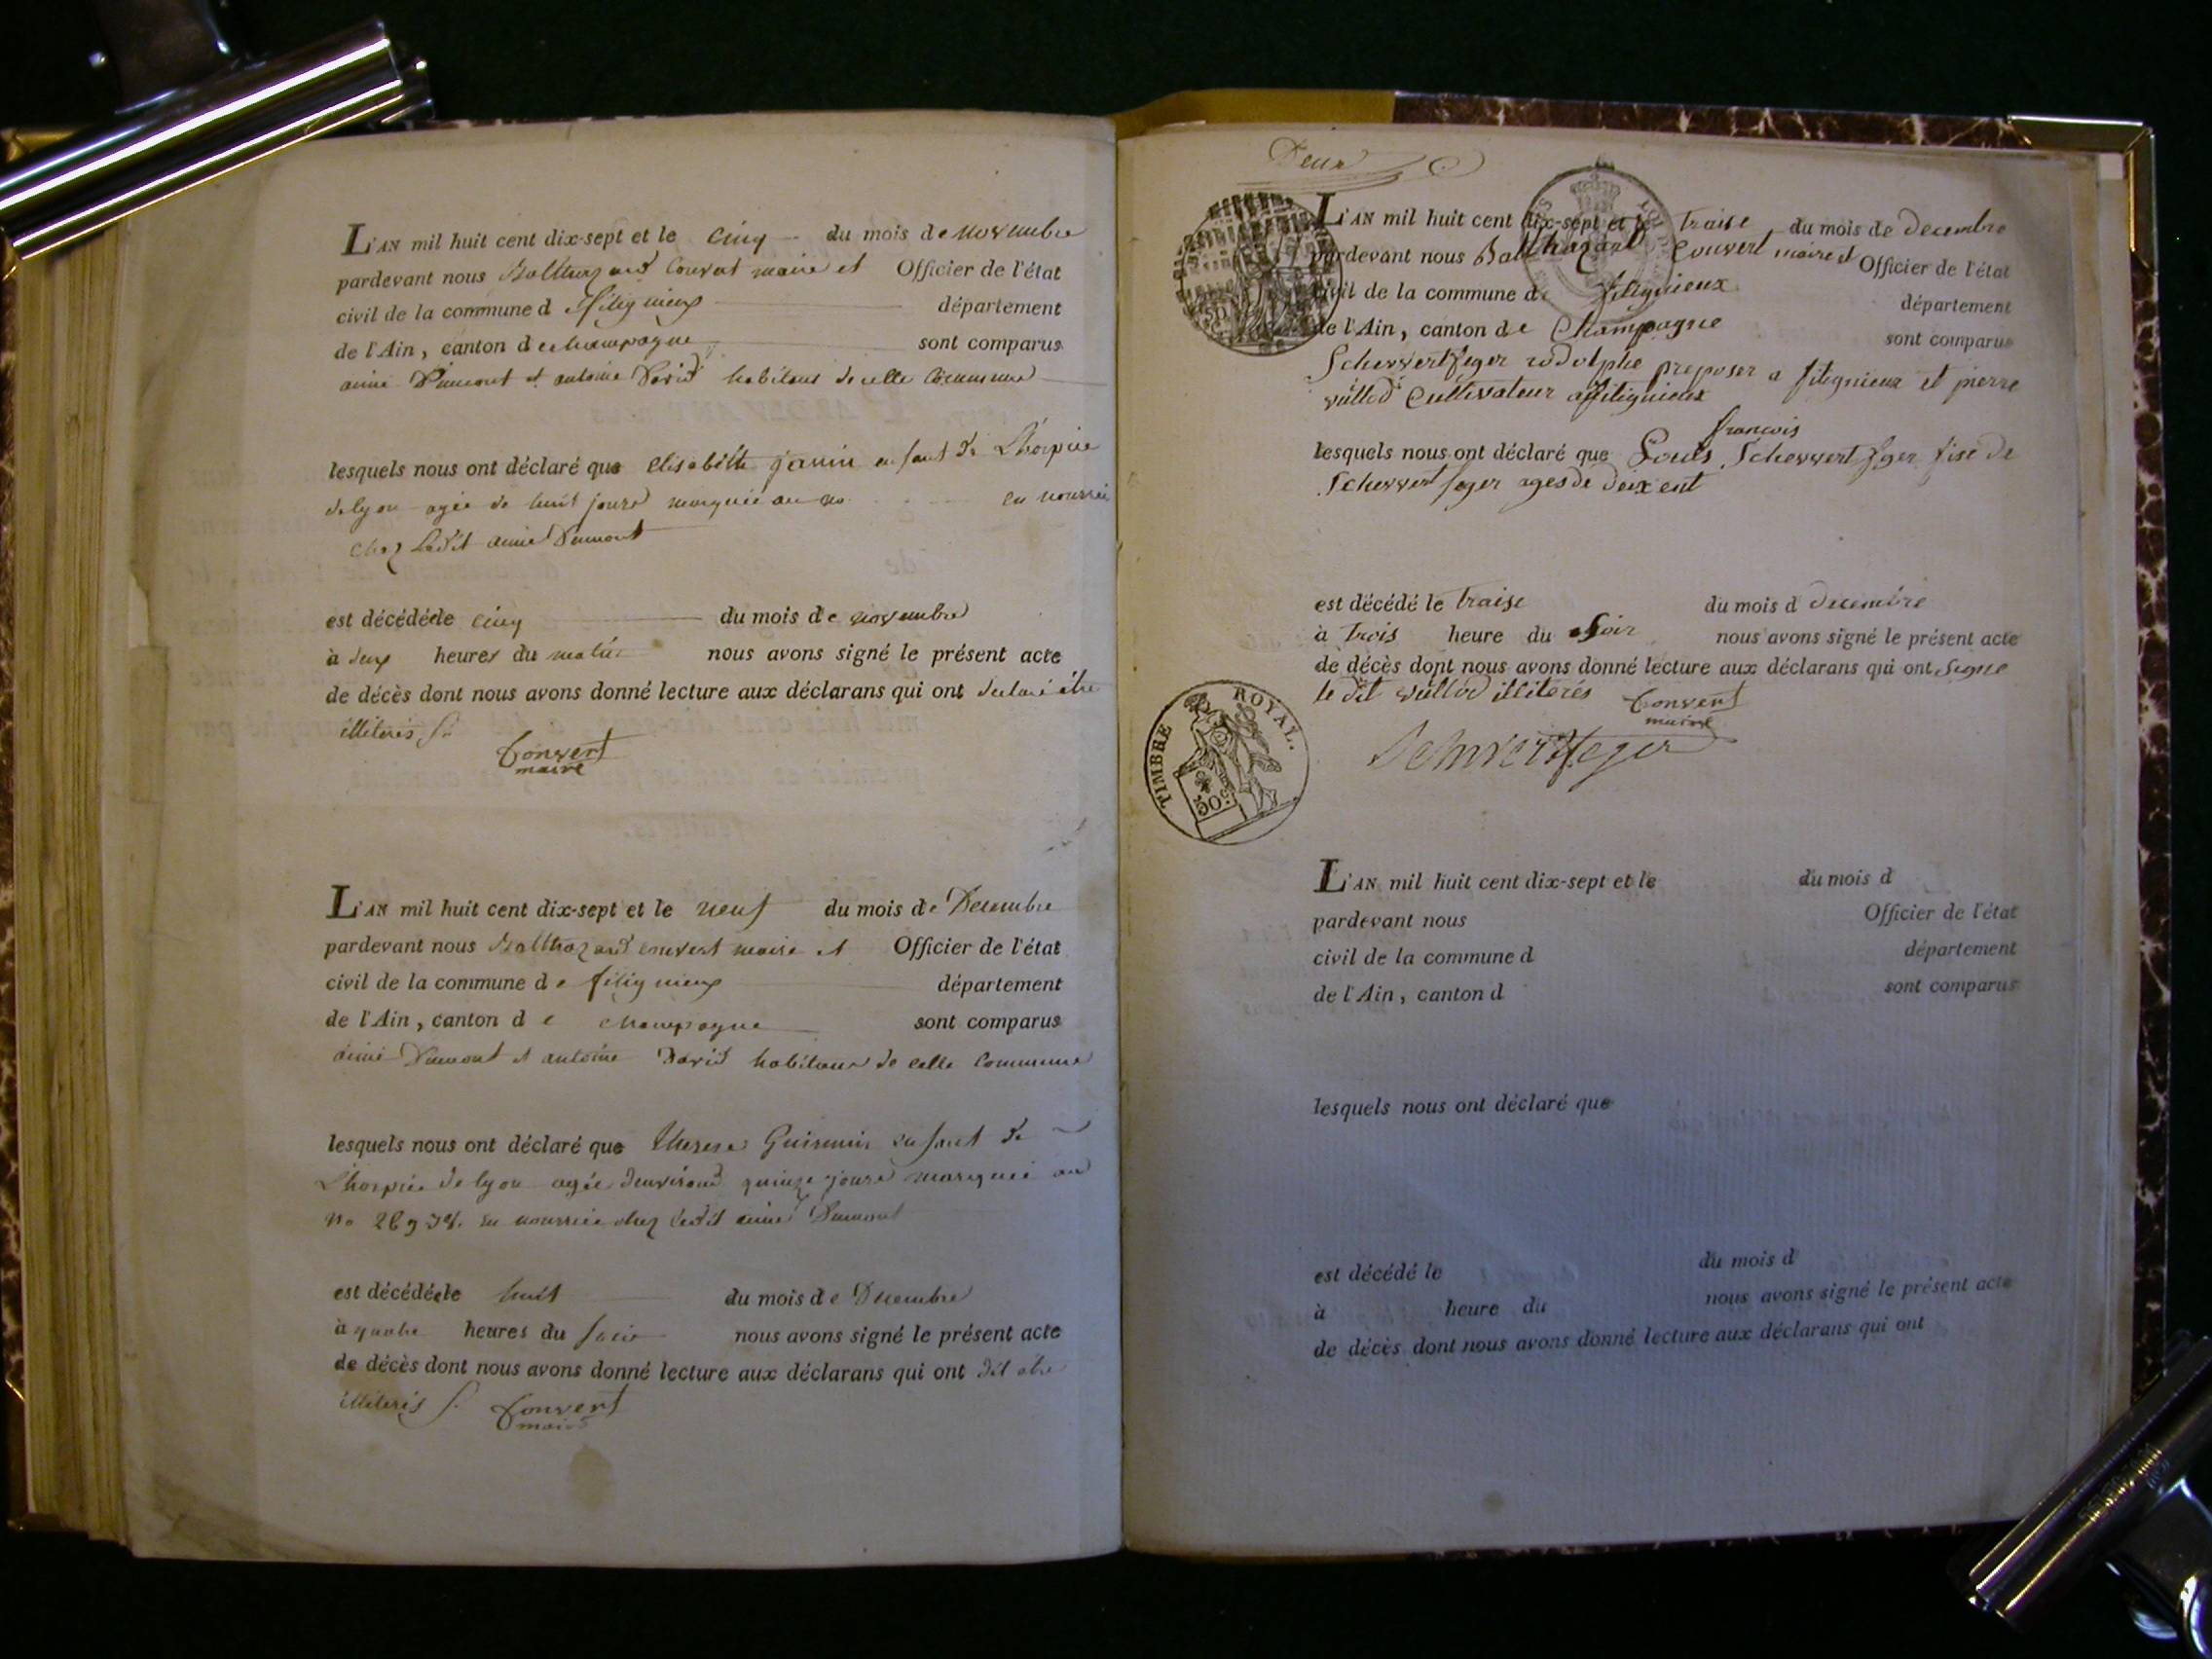 L'AN mil huit cent dix-sept et le cinq du mois de novembre
pardevant nous Balthazard Convert maire et Officier de l'état
civil de la commune d fitignieux département
de l'Ain, canton de champagne sont comparus
aimé Dumont et antoine David habitans de celle Commune
lesquels nous ont déclaré que elisabeth janin enfant de L'hospice
de lyon agée de huit jours marquée au no en nourrice
chez Ledit aimé Dumont
est décédée le cinq du mois de novembre
à deux heures du matin nous avons signé le présent acte
de décès dont nous avons donné lecture aux déclarans qui ont declaré être
illiterés
Convert
maire
L'AN mil huit cent dix-sept et le neuf du mois de Decembre
pardevant nous Balthazard convert maire et Officier de l'état
civil de la commune de fitignieux département
de l'Ain, canton de champagne sont comparus
aimé Dumont et antoine David habitans de celle Commune
lesquels nous ont déclaré que therese enfant de
L'hospice de lyon agée d'environd quinze jours marquée au
no en nourrice chez ledit aimé Dumont
est décédée le huit du mois de Decembre
à quatre heures du soir nous avons signé le présent acte
de décès dont nous avons donné lecture aux déclarans qui ont dit etre
illiterés
Convert
maire
Deux
L'AN mil huit cent dix-sept et le traise du mois de decembre
pardevant nous Balthazard Convert maire et Officier de l'état
civil de la commune de fitignieux département
de l'Ain, canton de Champagne sont comparus
Schewertfeger rodolphe preposer a fitignieux et pierre
vullod Cultivateur a fitignieux
francois
lesquels nous ont déclaré que Louis Schewertfger fise de
Schewertfeger ages de deix ent
est décédé le traise du mois d decembre
à trois heure du Soir nous avons signé le présent acte
de décès dont nous avons donné lecture aux déclarans qui ont Signe
le dit vullod illiterés
Convert
maire
Schwertfeger
TIMBRE ROYAL.
50 c.
L'AN mil huit cent dix-sept et le du mois d
pardevant nous Officier de l'état
civil de la commune d département
de l'Ain, canton d sont comparus
lesquels nous ont déclaré que
est décédé le du mois d
à heure du nous avons signé le présent acte
de décès dont nous avons donné lecture aux déclarans qui ont